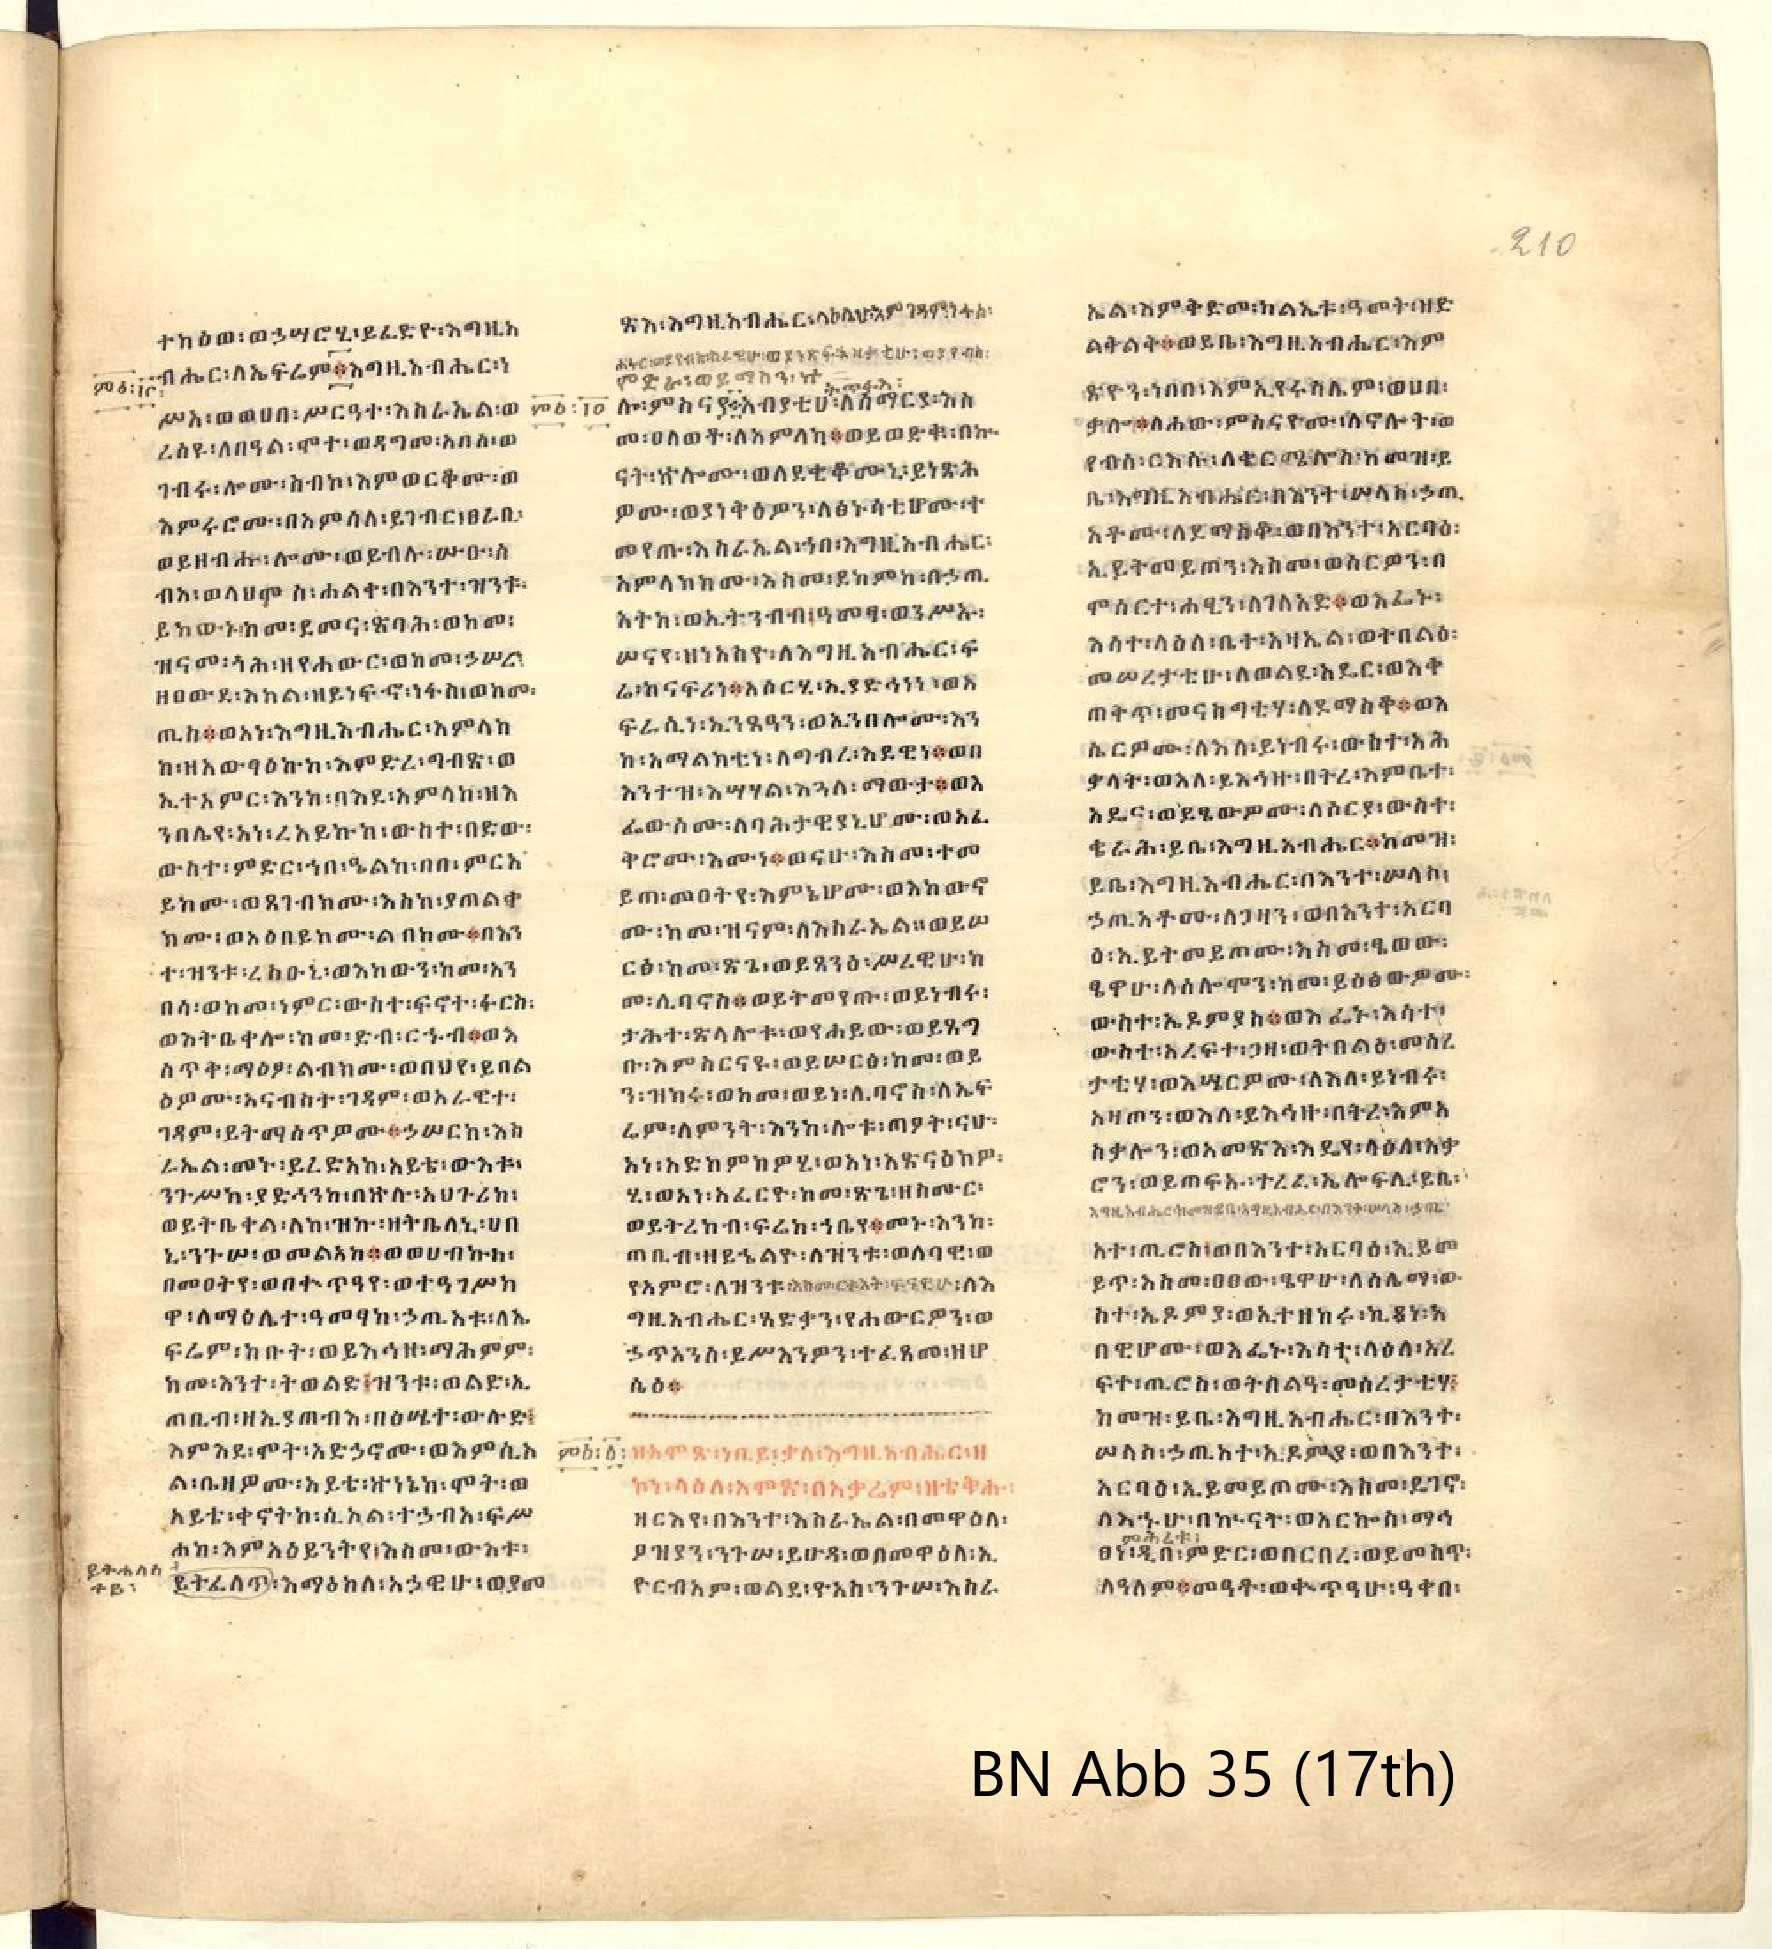 210
ተከዕወ፡ወኃሣሮሂ፡ይፈድዮ፡እግዚአ
ምዕ፡፲፫
ብሔር፡ለኤፍሬም።እግዚአብሔር፡ነ
ሥአ፡ወወሀበ፡ሥርዓተ፡እስራኤል፡ወ
ረሰዩ፡ለበዓል፡ሞተ፡ወዳግመ፡አበሰ፡ወ
ገብሩ፡ሎሙ፡ስብኮ፡እምወርቆሙ፡ወ
እምብሩሮሙ፡በአምሳለ፡ይገብር፡ፀራቢ፡
ወይዘብሑ፡ሎሙ፡ወይብሉ፡ሡዑ፡ስ
ብአ፡ወላህም ስ፡ሐልቀ፡በእንተ፡ዝንቱ፡
ይከውኑ፡ከመ፡ደመና፡ጽባሕ፡ወከመ፡
ዝናመ፡ሳሕ፡ዘየሐውር፡ወከመ፡ኃሠር፡
ዘዐውደ፡እክል፡ዘይነፍኖ፡ነፋስ፡ወከመ፡
ጢስ።ወአነ፡እግዚአብሔር፡አምላከ
ከ፡ዘአውፃዕኩከ፡እምድረ፡ግብጽ፡ወ
ኢተአምር፡እንከ፡ባእደ፡አምላከ፡ዘእ
ንበሌየ፡አነ፡ረአይኩከ፡ውስተ፡በድው፡
ውስተ፡ምድር፡ኀበ፡ዔልከ፡በበ፡ምርአ
ይከሙ፡ወጸገብከሙ፡እስከ፡ያጠልቀ
ክሙ፡ወአዕበይከሙ፡ልበከሙ።በእን
ተ፡ዝንቱ፡ረስዑኒ፡ወእከውን፡ከመ፡አን
በሳ፡ወከመ፡ነምር፡ውስተ፡ፍኖተ፡ፋርስ፡
ወእትቤቀሎ፡ከመ፡ድብ፡ርኁብ።ወእ
ሰጥቅ፡ማዕፆ፡ልብከሙ፡ወበህየ፡ይበል
ዕዎሙ፡አናብስት፡ገዳም፡ወአራዊተ፡
ገዳም፡ይትማሰጥዎሙ።ኃሠርከ፡እስ
ራኤል፡መኑ፡ይረድአከ፡አይቴ፡ውእቱ፡
ንጉሥከ፡ያድኅንከ፡በኵሉ፡አህጉሪከ፡
ወይትቤቀል፡ለከ፡ዝኩ፡ዘትቤለኒ፡ሀበ
ኒ፡ንጉሠ፡ወመልአከ።ወወሀብኩከ፡
በመዐትየ፡ወበቍጥዓየ፡ወተዓገሥከ
ዋ፡ለማዕሌተ፡ዓመፃከ፡ኃጢአቱ፡ለኤ
ፍሬም፡ከቡት፡ወይእኅዘ፡ማሕምም፡
ከመ፡እንተ፡ትወልድ፡ዝንቱ፡ወልድ፡ኢ
ጠቢብ፡ዘኢያጠብእ፡በዕሤተ፡ውሉድ፡
እምእደ፡ሞት፡አድኃኖሙ፡ወእምሲኦ
ል፡ቤዘዎሙ፡አይቴ፡ኵነኔከ፡ሞት፡ወ
አይቴ፡ቀኖትከ፡ሲኦል፡ተኃብአ፡ፍሥ
ሐከ፡እምአዕይንትየ፡እስመ፡ውእቱ፡
ይትፈለጥ፡እማዕከለ፡አኃዊሁ፡ወያመ
ጽእ፡እግዚአብሔር፡ላዕሌሁ፡እምገዳም፡ነፋሰ፡
ምዕ፡፲፬
ሎ፡ምስናያ፡አብያቲሁ፡ለሰማርያ፡እስ
መ፡ዐለወት፡ለአምላከ።ወይወድቁ፡በኵ
ናት፡ኵሎሙ፡ወለደቂቆሙኒ፡ይነጽሕ
ዎሙ፡ወያነቅዕዎን፡ለፅኑሳቲሆሙ፡ተ
መየጡ፡እስራኤል፡ኀበ፡እግዚአብሔር፡
አምላክከሙ፡እስመ፡ደከምከ፡በኃጢ
አትከ፡ወኢትንብብ፡ዓመፃ፡ወንሥኡ፡
ሠናየ፡ዘነአስዮ፡ለእግዚአብሔር፡ፍ
ሬ፡ከናፍሪነ።አሶርሂ፡ኢያድኅነነ፡ወአ
ፍራሲነ፡ኢንጼዓን፡ወኢንበሎሙ፡እን
ከ፡አማልክቲነ፡ለግብረ፡እደዊነ።ወበ
እንተዝ፡እሣሃል፡እጓለ፡ማውታ።ወእ
ፌውሶሙ፡ለባሕታዊያኒሆሙ፡ወአፈ
ቅሮሙ፡እሙነ።ወናሁ፡እስመ፡ተመ
ይጠ፡መዐትየ፡እምኔሆሙ፡ወእከውኖ
ሙ፡ከመ፡ዝናም፡ለእስራኤል።ወይሠ
ርፅ፡ከመ፡ጽጌ፡ወይጸንዕ፡ሥረዊሁ፡ከ
መ፡ሊባኖስ።ወይትመየጡ፡ወይነብሩ፡
ታሕተ፡ጽላሎቱ፡ወየሐይው፡ወይጸግ
ቡ፡እምስርናዩ፡ወይሠርፅ፡ከመ፡ወይ
ን፡ዝክሩ፡ወከመ፡ወይነ፡ሊባኖስ፡ለኤፍ
ሬም፡ለምንት፡እንከ፡ሎቱ፡ጣዖት፡ናሁ፡
አነ፡አድከምክዎሂ፡ወአነ፡አጽናዕክዎ፡
ሂ፡ወአነ፡አፈርዮ፡ከመ፡ጽጌ፡ዘስሙር፡
ወይትረከብ፡ፍሬከ፡ኀቤየ።መኑ፡እንከ፡
ጠቢብ፡ዘይኄልዮ፡ለዝንቱ፡ወለባዊ፡ወ
የአምሮ፡ለዝንቱ፡እስመ፡ርቱዕት፡ፍናዊሁ፡ለእ
ግዚአብሔር፡ጻድቃን፡የሐውርዎን፡ወ
ኃጥአንሰ፡ይሥእንዎን፡ተፈጸመ፡ዘሆ
ሴዕ።
ምዕ፡፩፡
ዘአሞጽ፡ነቢይ፡ቃለ፡እግዚአብሔር፡ዘ
ኮነ፡ላዕለ፡አሞጽ፡በአቃሬም፡ዘቴቁሔ፡
ዘርእየ፡በእንተ፡እስራኤል፡በመዋዕለ፡
ዖዝያን፡ንጉሠ፡ይሁዳ፡ወበመዋዕለ፡ኢ
ዮርብአም፡ወልደ፡ዮአስ፡ንጉሠ፡እስራ
ኤል፡እምቅድመ፡ክልኤቱ፡ዓመት፡ዘድ
ልቅልቅ።ወይቤ፡እግዚአብሔር፡እም
ጽዮን፡ነበበ፡እምኢየሩሳሌም፡ወሀበ፡
ቃሎ።ለሐው፡ምስናዮሙ፡ለኖሎት፡ወ
የብሰ፡ርእሱ፡ለቂርሜሎስ፡ከመዝ፡ይ
ቤ፡እግዚአብሔር፡በእንተ፡ሠላስ፡ኃጢ
አቶሙ፡ለደማስቆ፡ወበእንተ፡አርባዕ፡
ኢይትመይጦን፡እስመ፡ወሰርዎን፡በ
ሞሰርተ፡ሐፂን፡ለገለአድ።ወእፌኑ፡
እሳተ፡ላዕለ፡ቤተ፡አዛኤል፡ወትበልዕ፡
መሠረታቲሁ፡ለወልደ፡አዴር፡ወእቀ
ጠቅጥ፡መናስግቲሃ፡ለደማስቆ።ወእ
ሤርዎሙ፡ለእለ፡ይነብሩ፡ውስተ፡አሕ
ቃላት፡ወእለ፡ይእኅዙ፡በትረ፡እምቤተ፡
እዴና፡ወይፄውውዎሙ፡ለሶርያ፡ውስተ፡
ቄራሕ፡ይቤ፡እግዚአብሔር።ከመዝ፡
ይቤ፡እግዚአብሔር፡በእንተ፡ሠላስ፡
ኃጢአቶሙ፡ለጋዛን፡ወበእንተ፡አርባ
ዕ፡ኢይትመይጦሙ፡እስመ፡ፄወው፡
ፄዋሁ፡ለሰሎሞን፡ከመ፡ይዕፅውዎሙ፡
ውስተ፡ኤዶምያስ።ወእፌኑ፡እሳተ፡
ውስተ፡አረፍተ፡ጋዛ፡ወትበልዕ፡መሰረ
ታቲሃ፡ወእሤርዎሙ፡ለእለ፡ይነብሩ፡
አዛጦን፡ወእለ፡ይእኅዙ፡በትረ፡እምአ
ስቃሎን፡ወአመጽእ፡እዴየ፡ላዕለ፡አቃ
ሮን፡ወይጠፍኡ፡ተረፈ፡ኤሎፍሊ፡ይቤ፡
እግዚአብሔር፡ከመዝ፡ይቤ፡እግዚአብሔር፡በእንተ፡ሠላስ፡ኃጢ
አተ፡ጢሮስ፡ወበእንተ፡አርባዕ፡ኢይመ
ይጥ፡እስመ፡ዐፀው፡ፄዋሁ፡ለሰሌማ፡ው
ስተ፡ኤዶምያ፡ወኢተዘከሩ፡ኪዳነ፡አ
በዊሆሙ፡ወእፌኑ፡እሳተ፡ላዕለ፡አረ
ፍተ፡ጢሮስ፡ወትበልዓ፡መሰረታቲሃ፡
ከመዝ፡ይቤ፡እግዚአብሔር፡በእንተ፡
ሠላስ፡ኃጢአተ፡ኢዶምያ፡ወበእንተ፡
አርባዕ፡ኢይመይጦሙ፡እስመ፡ዴገኖ፡
ለእኁሁ፡በኵናት፡ወአርኰሰ፡ማኅ
ፀነ፡ዲበ፡ምድር፡ወበርበረ፡ወይመስጥ፡
ለዓለም።መዓት፡ወቍጥዓሁ፡ዓቀበ፡
BN Abb 35 (17th)